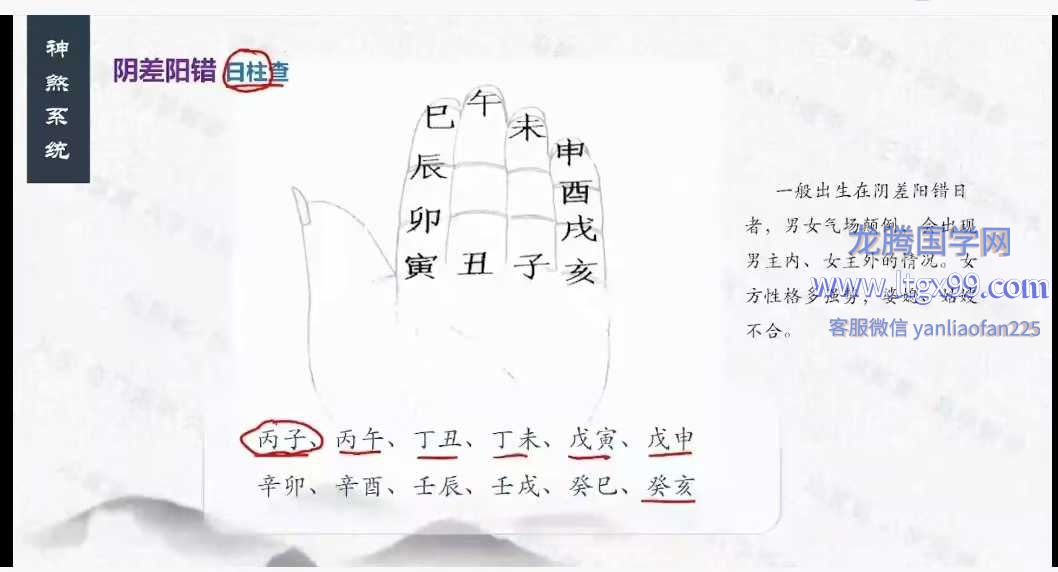 神煞系统
阴差阳错 日柱查
巳 午 未 申
辰 酉
卯 戌
寅 丑 子 亥
一般出生在阴差阳错日
者，男女气场颠倒，会出现
男主内、女主外的情况。女
方性格多强势，婆媳、姑嫂
不合。
龙腾国学网
www.ltgx99.com
客服微信 yanliaofan225
丙子、丙午、丁丑、丁未、戊寅、戊申
辛卯、辛酉、壬辰、壬戌、癸巳、癸亥